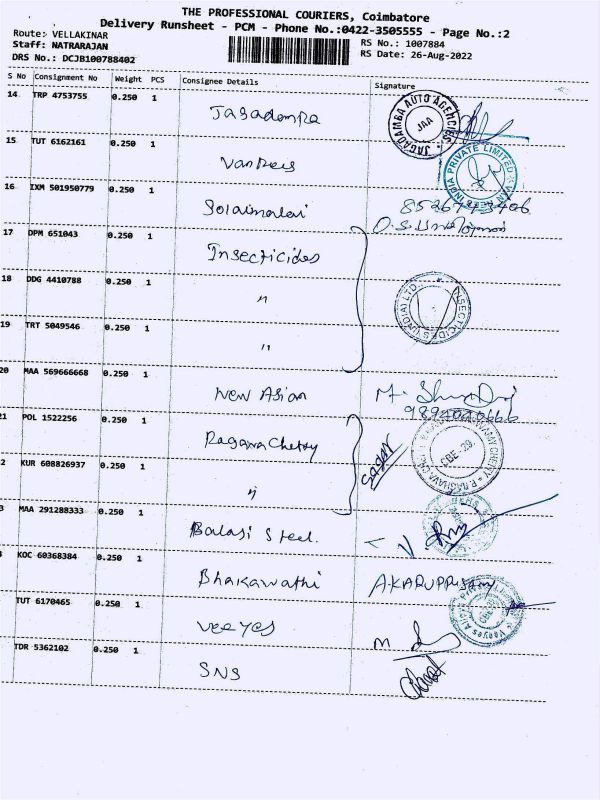 THE PROFESSIONAL COURIERS, Coimbatore
Delivery Runsheet - PCM - Phone No.:0422-3505555 - Page No.:2
Route: VELLAKINAR
RS No.: 1007884
Staff: NATRARAJAN
RS Date: 26-Aug-2022
DRS No.: DCJB100788402
S No Consignment No Weight PCS Consignee Details Signature
14 TRP 4753755 0.250 1 Jagadamba
JAGADAMBA AUTO AGENCIES JAA
15 TUT 6162161 0.250 1
INDIA PRIVATE LIMITED
16 IXM 501950779 0.250 1 Solaimalai
17 DPM 651043 0.250 1 Insecticides
18 DDG 4410788 0.250 1 "
INSECTICIDES (INDIA) LTD.
19 TRT 5049546 0.250 1 "
20 MAA 569666668 0.250 1 New Asian
21 POL 1522256 0.250 1 Ragava Chetty
CBE-29
2 KUR 608826937 0.250 1 "
3 MAA 291288333 0.250 1 Balaji Steel.
KOC 60368384 0.250 1 Bhakawathi A.KARUPPUSAMY
TUT 6170465 0.250 1 Veeyes
TDR 5362102 0.250 1 SNS